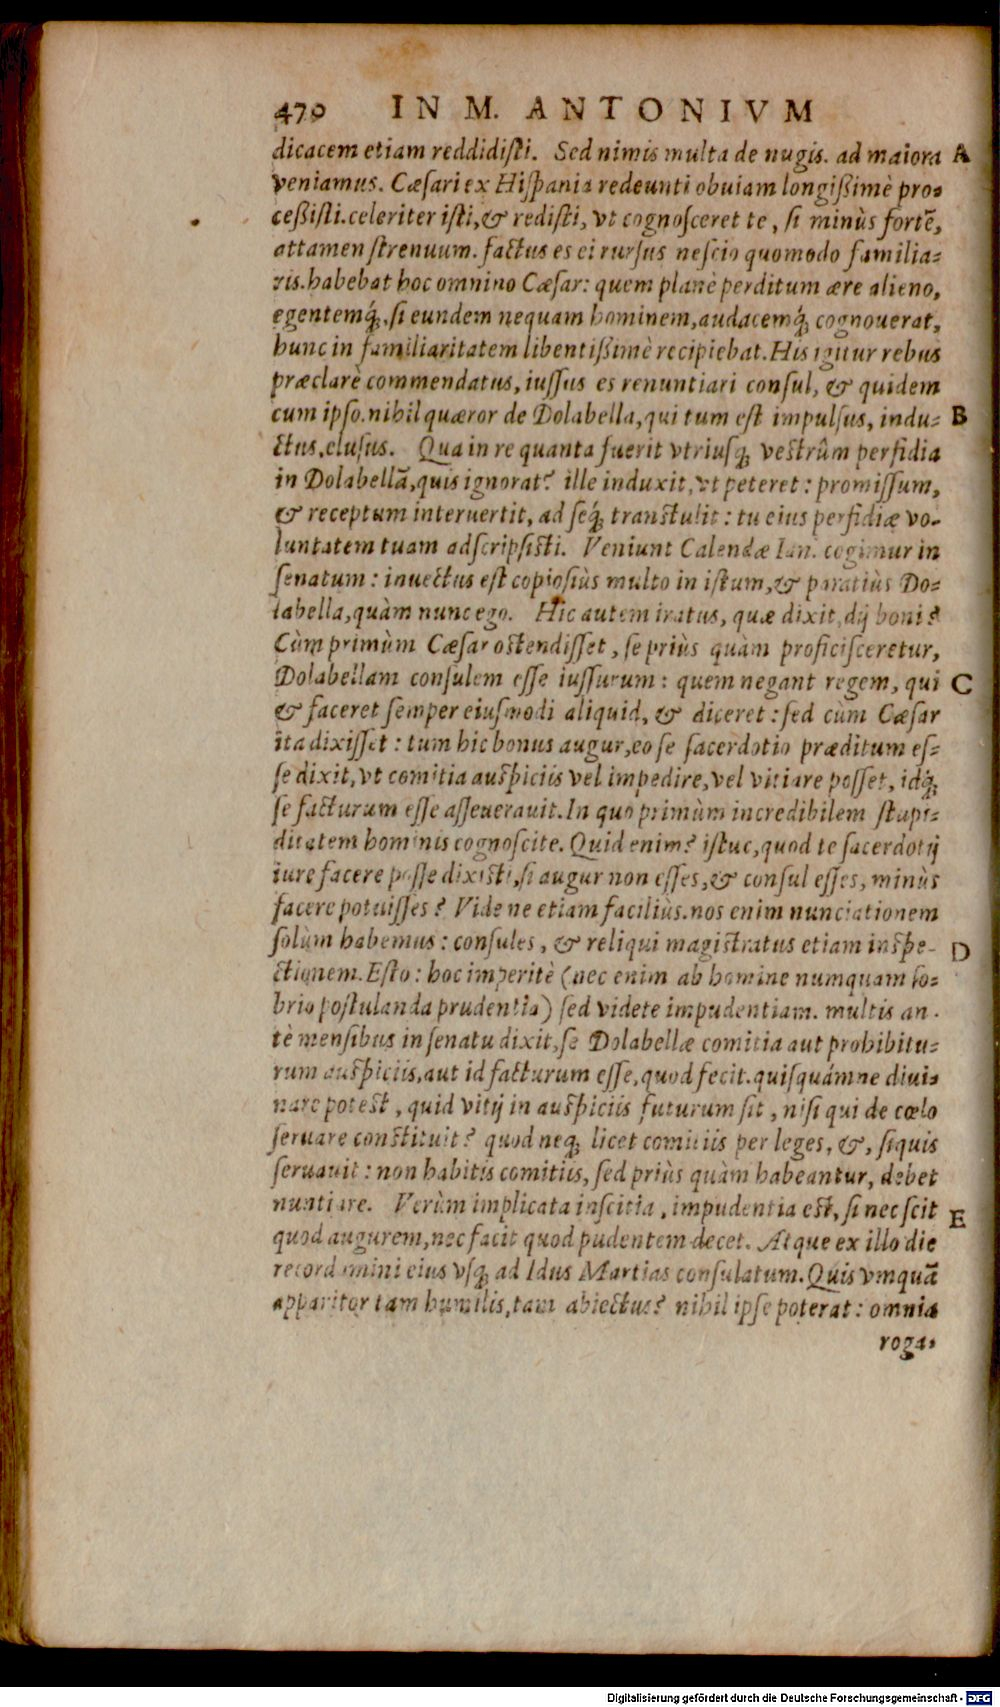 470 IN M. ANTONIVM
dicacem etiam reddidisti. Sed nimis multa de nugis. ad maiora A
veniamus. Cæsari ex Hispania redeunti obuiam longißimè pro-
ceßisti. celeriter isti, & redisti, vt cognosceret te, si minùs fortẽ,
attamen strenuum. factus es ei rursus nescio quomodo familia-
ris. habebat hoc omnino Cæsar: quem planè perditum ære alieno,
egentemq́;, si eundem nequam hominem, audacemq́; cognouerat,
hunc in familiaritatem libentißimè recipiebat. His igitur rebus
præclarè commendatus, iussus es renuntiari consul, & quidem
cum ipso. nihil quæror de Dolabella, qui tum est impulsus, indu- B
ctus, elusus. Qua in re quanta fuerit vtriusq; vestrûm perfidia
in Dolabellã, quis ignorat? ille induxit, vt peteret: promissum,
& receptum interuertit, ad seq́; transtulit: tu eius perfidiæ vo-
luntatem tuam adscripsisti. Veniunt Calendæ Ian. cogimur in
senatum: inuectus est copiosiùs multo in istum, & paratiùs Do-
labella, quàm nunc ego. Hic autem iratus, quæ dixit, dij boni?
Cùm primùm Cæsar ostendisset, se priùs quàm proficisceretur,
Dolabellam consulem esse iussurum: quem negant regem, qui C
& faceret semper eiusmodi aliquid, & diceret: sed cùm Cæsar
ita dixisset: tum hic bonus augur, eo se sacerdotio præditum es-
se dixit, vt comitia auspiciis vel impedire, vel vitiare posset, idq́;
se facturum esse asseuerauit. In quo primùm incredibilem stupi-
ditatem hominis cognoscite. Quid enim? istuc, quod te sacerdotij
iure facere posse dixisti, si augur non esses, & consul esses, minùs
facere potuisses? Vide ne etiam faciliùs. nos enim nunciationem
solùm habemus: consules, & reliqui magistratus etiam inspe- D
ctionem. Esto: hoc imperitè (nec enim ab homine numquam so-
brio postulanda prudentia) sed videte impudentiam. multis an-
tè mensibus in senatu dixit, se Dolabellæ comitia aut prohibitu-
rum auspiciis, aut id facturum esse, quod fecit. quisquámne diui-
nare potest, quid vitij in auspiciis futurum sit, nisi qui de cœlo
seruare constituit? quod neq; licet comitiis per leges, &, siquis
seruauit: non habitis comitiis, sed priùs quàm habeantur, debet
nuntiare. Verùm implicata inscitia, impudentia est, si nec scit E
quod augurem, nec facit quod pudentem decet. Atque ex illo die
recordamini eius vsq; ad Idus Martias consulatum. Quis vmquã
apparitor tam humilis, tam abiectus? nihil ipse poterat: omnia
roga-
Digitalisierung gefördert durch die Deutsche Forschungsgemeinschaft - DFG